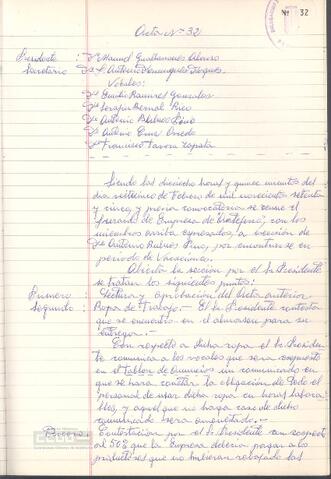 Nº 32
Acta Nº 32
Presidente: Dn Manuel Gualbamoues Alonso
Secretario: Dn Antonio Dominguez Noques.
Vocales:
Dn Emilio Ramirez Gonzalez
Dn Serafin Bernal Rico
Dn Antonio Bulnes Pino
Dn Antonio Oviedo
Dn Francisco Tavora Zapata
Siendo las dieciocho horas y quince minutos del
dia veintiocho de Febrero de mil novecientos setenta
y cinco, y previa convocatoria se reune el
Jurado de Empresa de con los
miembros arriba expresados, a excección de
Dn Antonio Bulnes Pino, por encontrarse en
periodo de Vacaciones.
Abierta la sección por el Sr. Presidente
se tratan los siguientes puntos:
Primero: Lectura y aprobación del Acta anterior.
Segundo: Ropa de Trabajo. - El Sr. Presidente contesta
que se encuentra en el almacen para su
entrega. -
Con respecto a dicha ropa el Sr. Presiden
te comunica a los vocales que sera expuesto
en el Tablon de Anuncios un comunicado en
que se hara constar la obligación de todo el
personal de usar dicha ropa en horas labora
bles, y aquel que no haga caso de dicho
comunicado sera
Tercero: Contestacion por el Sr. Presidente con respecto
al 50% que la Empresa deberia pagar a los
productores que no hubieran rebajado las